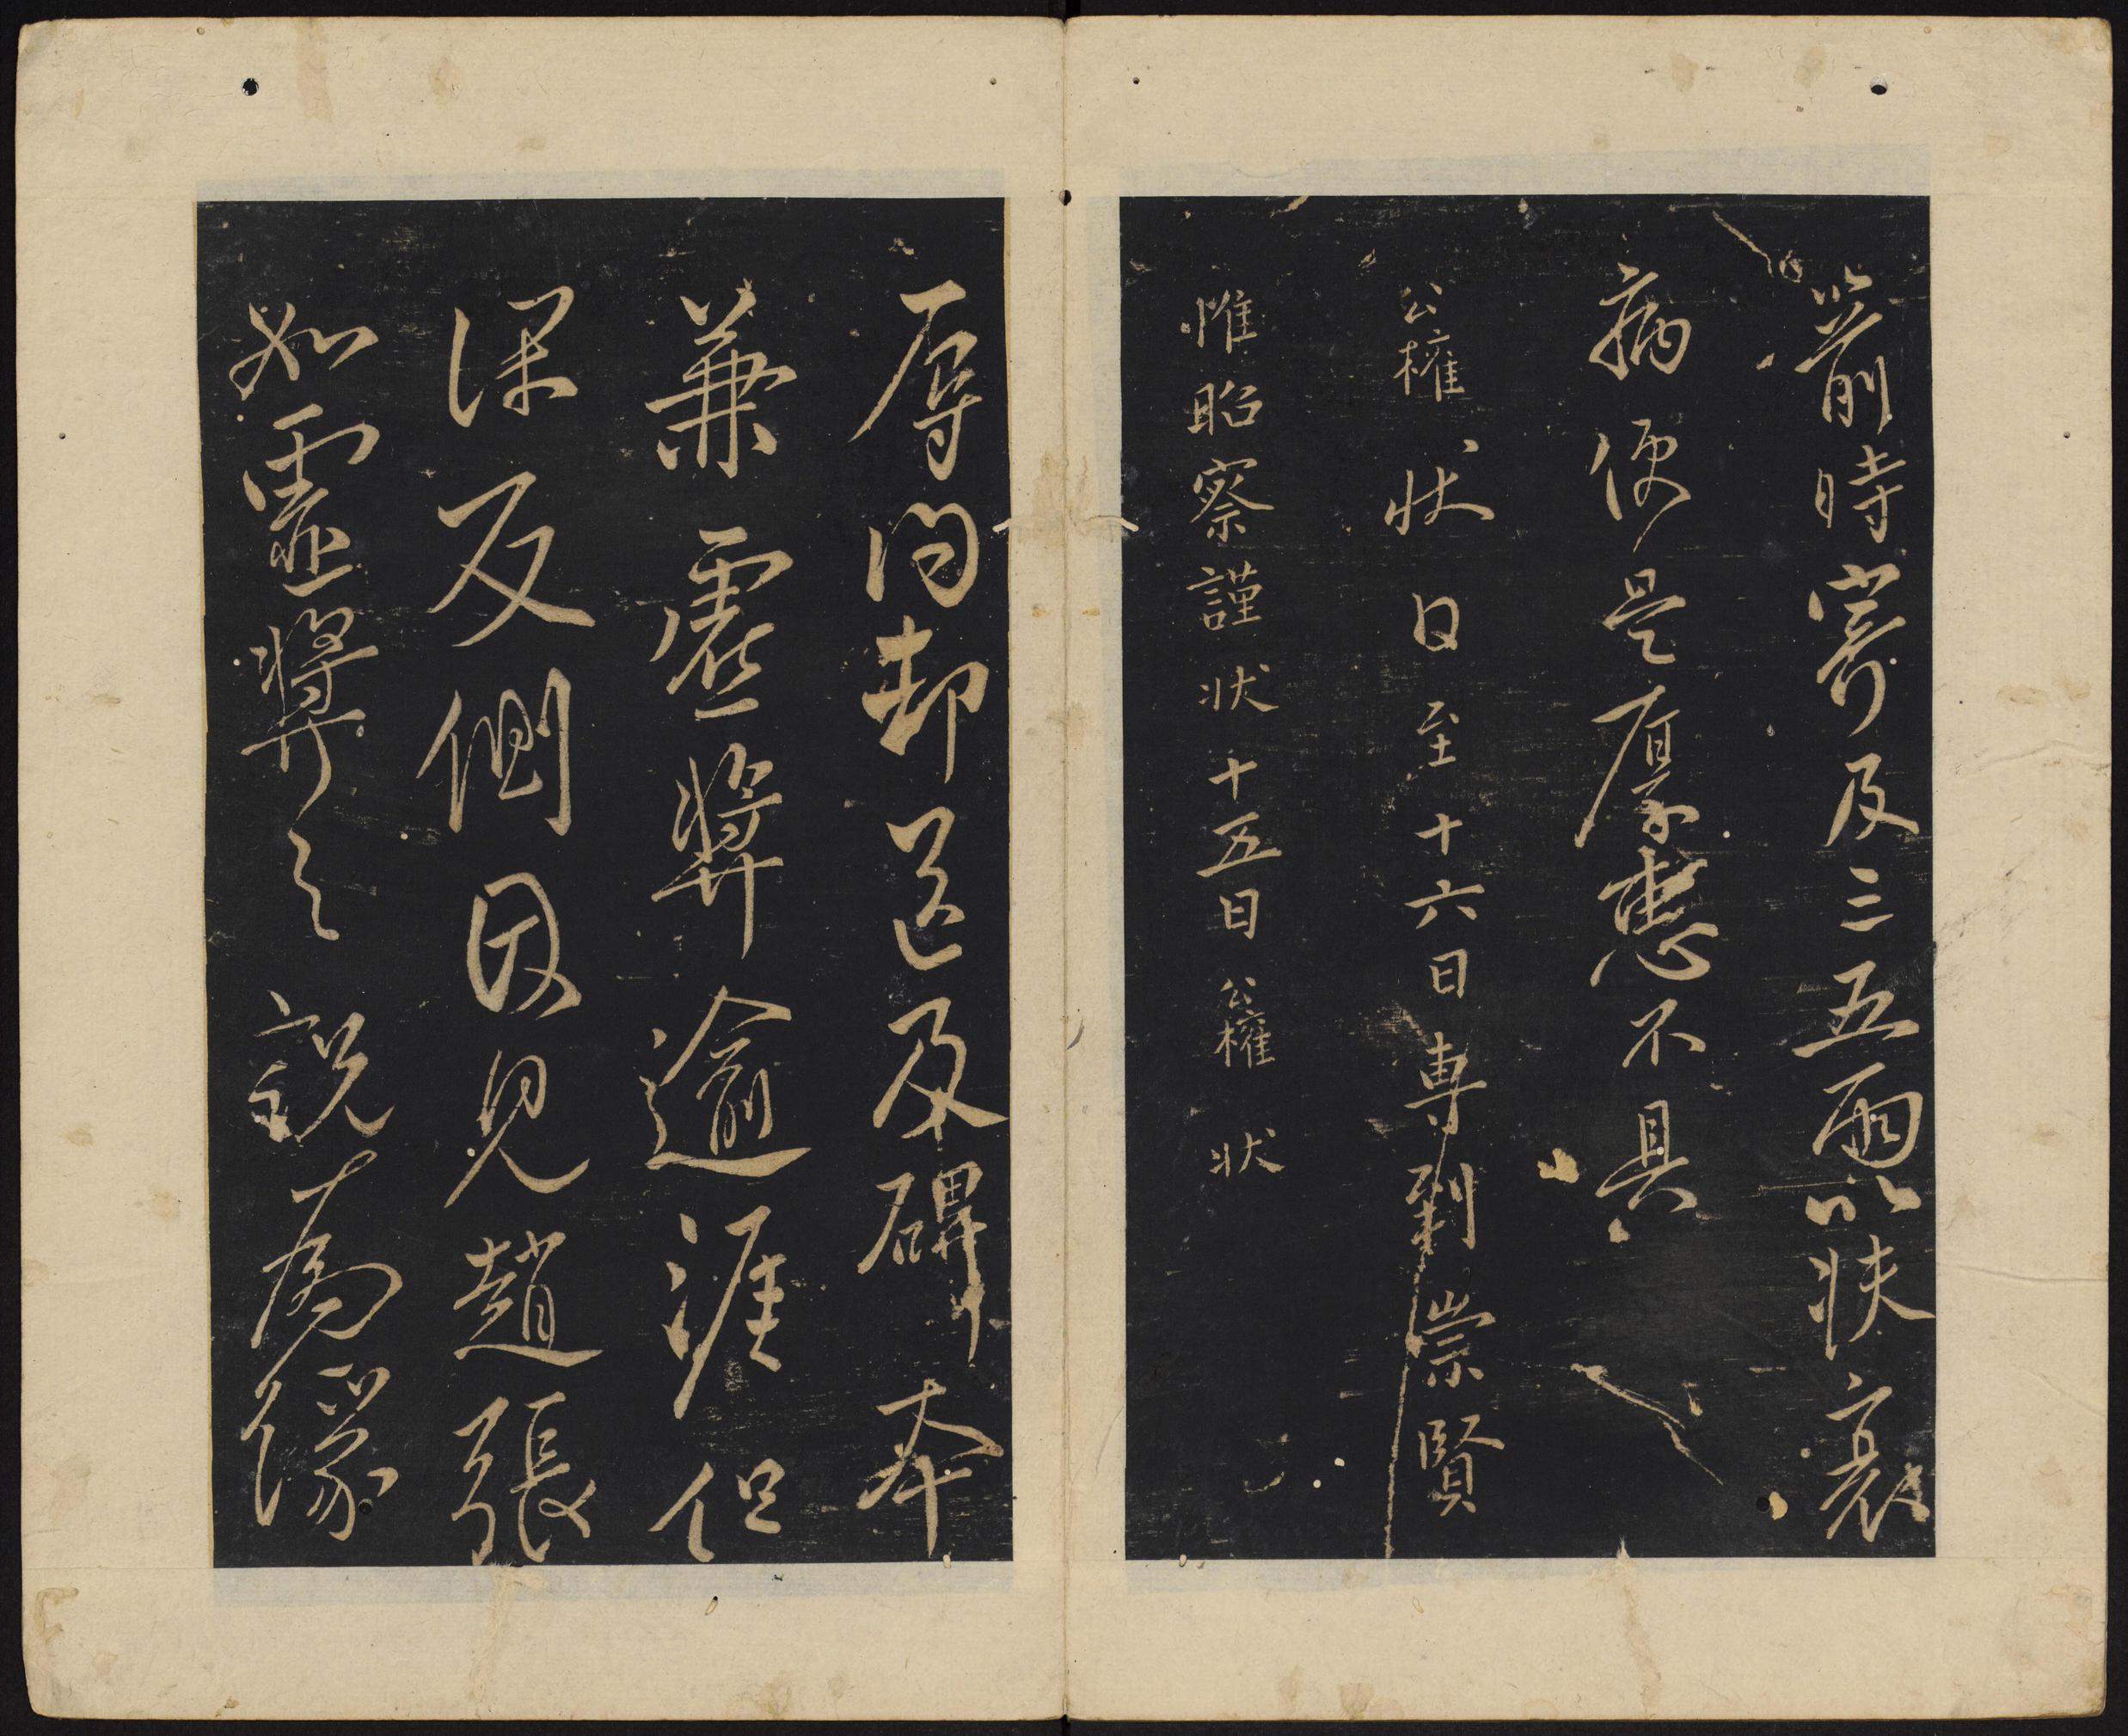 前時寄及三五兩以扶衰
病便是厚惠不具
公權狀日至十六日專到崇賢
惟昭察謹狀十五日公權狀
辱問却送及碑本
兼虛獎逾涯但
深反側因見趙張
如虛獎之說為